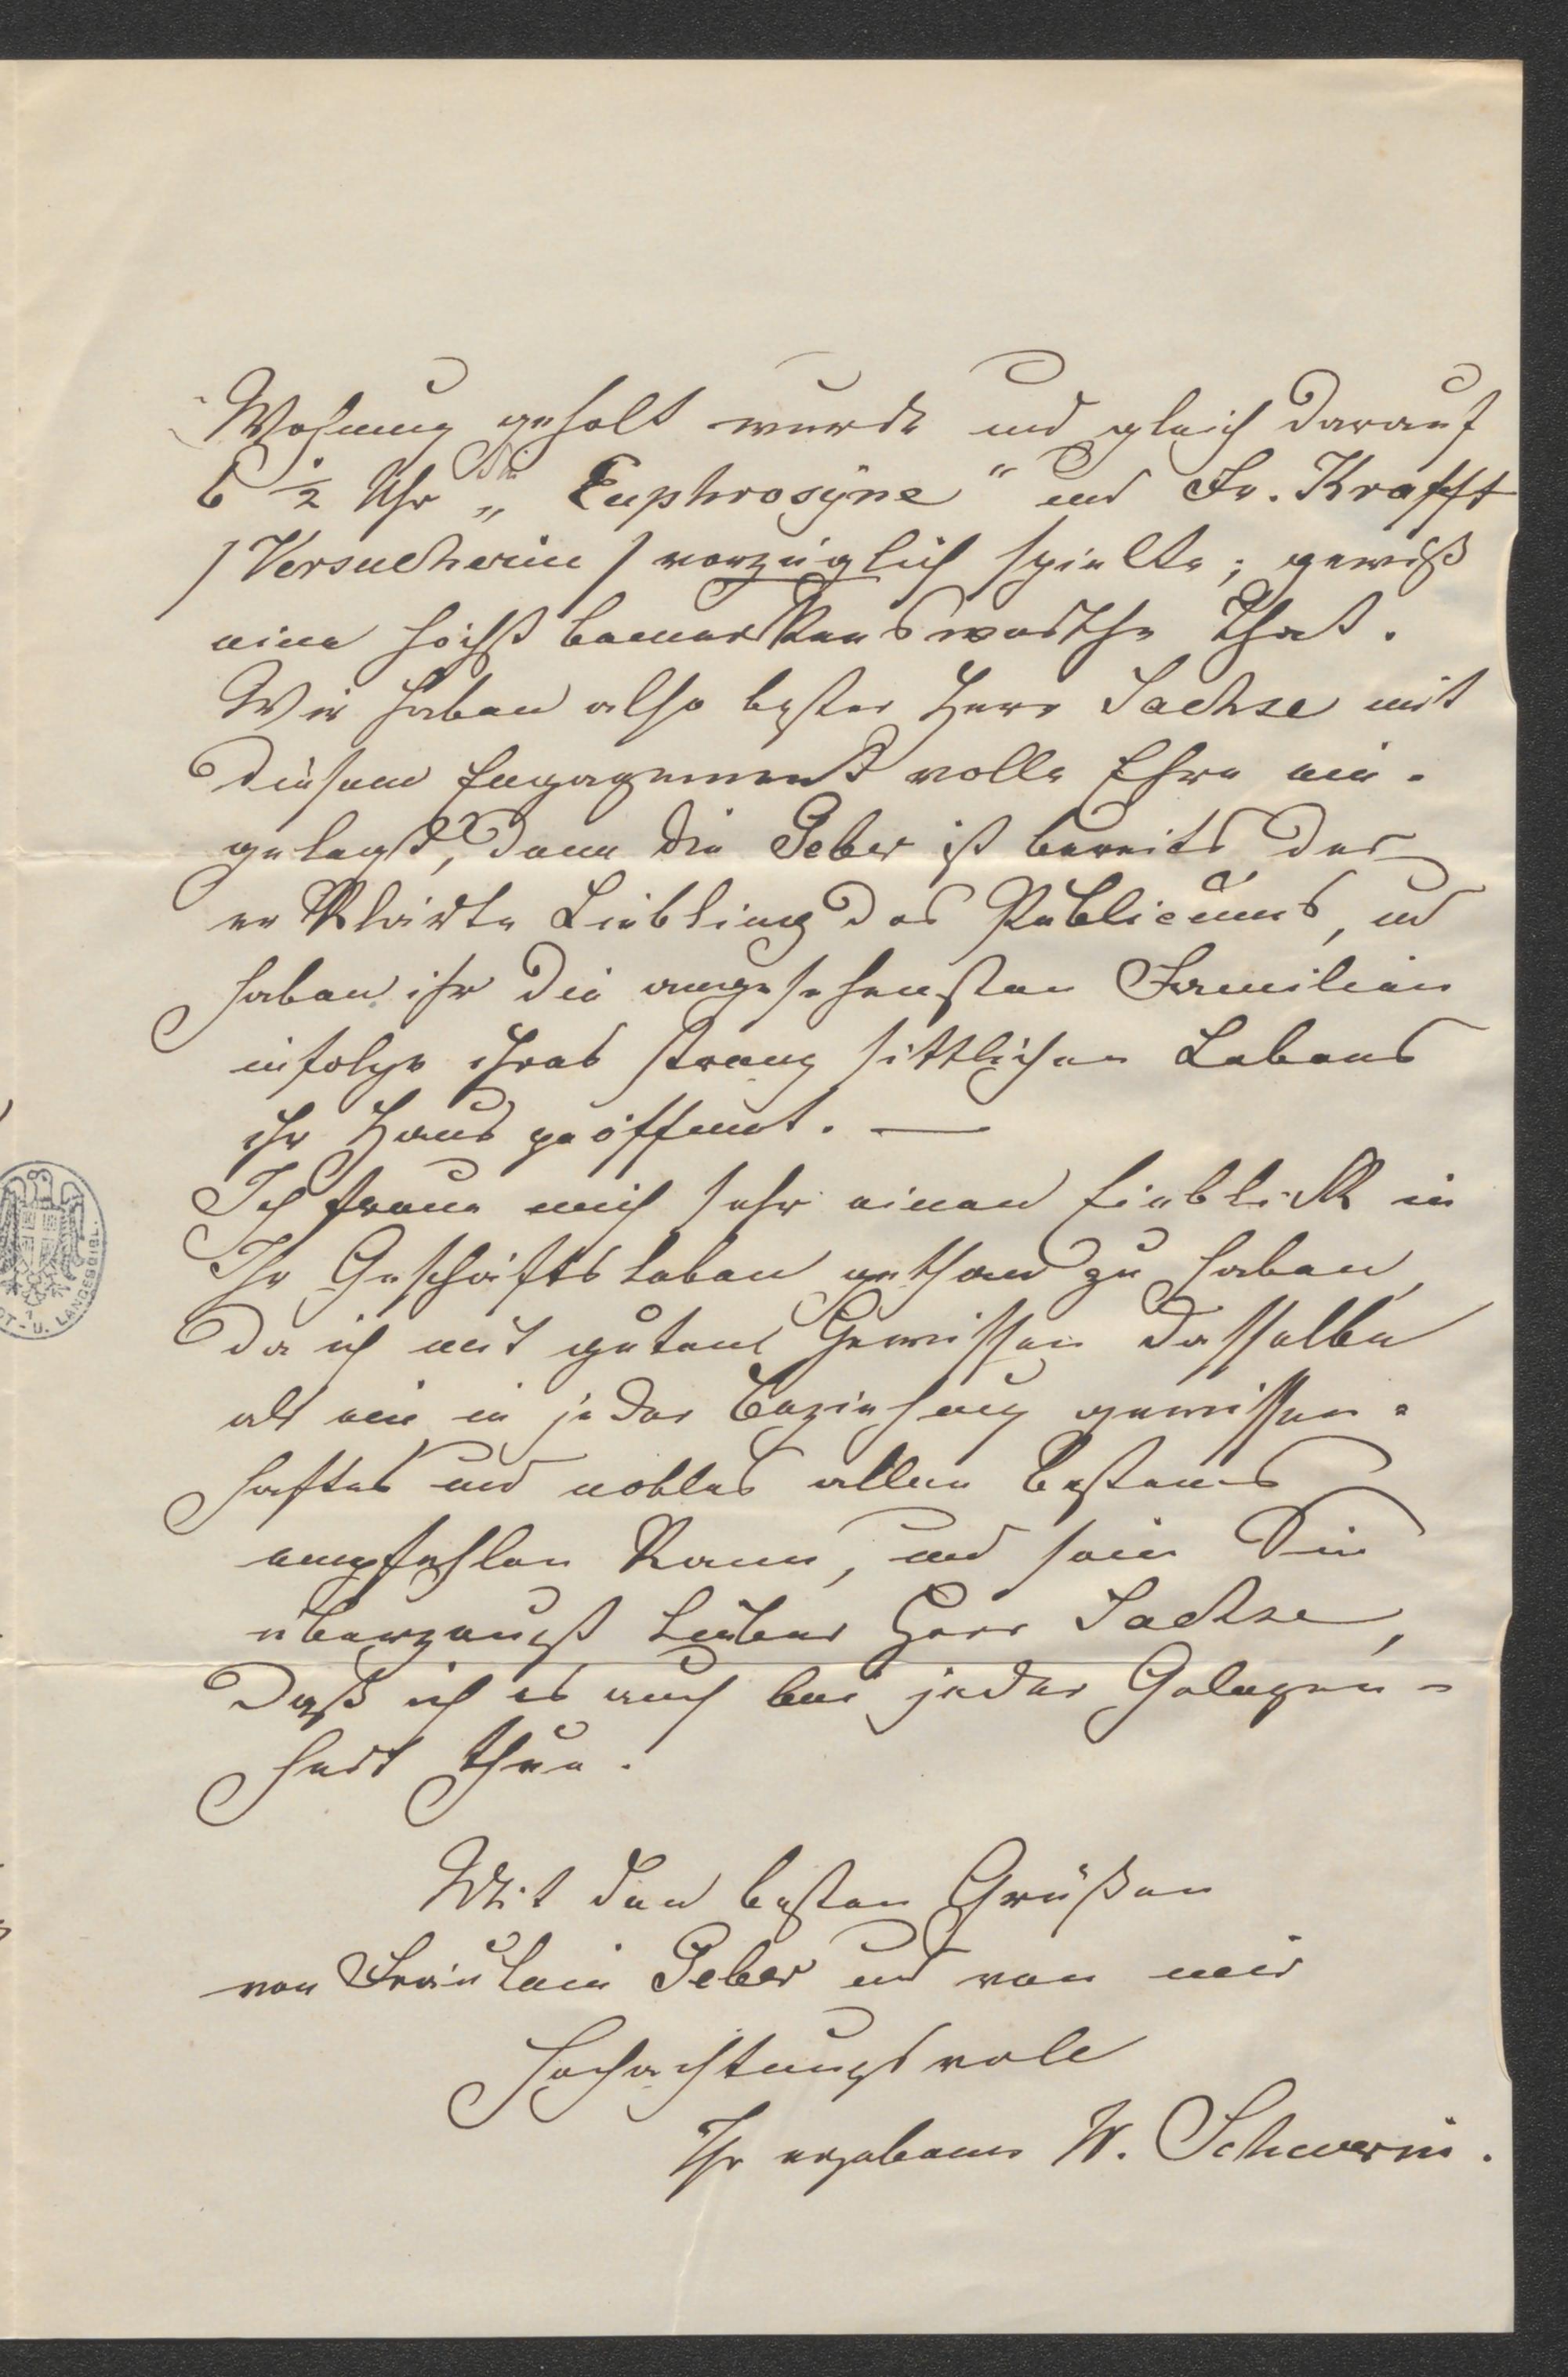 Wohnung geholt wurde und gleich darauf
6 ½ Uhr die „Euphrosyne“ und Fr. Krafft
/Versucherin/ vorzüglich spielte; gewiß
eine höchst bemerkenswerthe That.
Wir haben also bester Herr Sachse mit
diesem Engagement volle Ehre ein-
gelegt, denn die Geber ist bereits der
erklärte Liebling des Publicums, und
haben ihr die angesehensten Familien
infolge ihres streng sittlichen Lebens
ihr Haus geöffnet. —
Ich freue mich sehr einen Einblick in
Ihr Geschäftsleben gethan zu haben,
da ich mit gutem Gewissen dasselbe
als ein in jeder Beziehung gewissen-
haftes und nobles allen bestens
empfehlen kann, und sein Sie
überzeugt lieber Herr Sachse,
daß ich es auch bei jeder Gelegen-
heit thue.
Mit den besten Grüßen
von Fräulein Geber und von mir
Hochachtungsvoll
Ihr ergebener W. Schwerin.
U. LANDESBIBL.